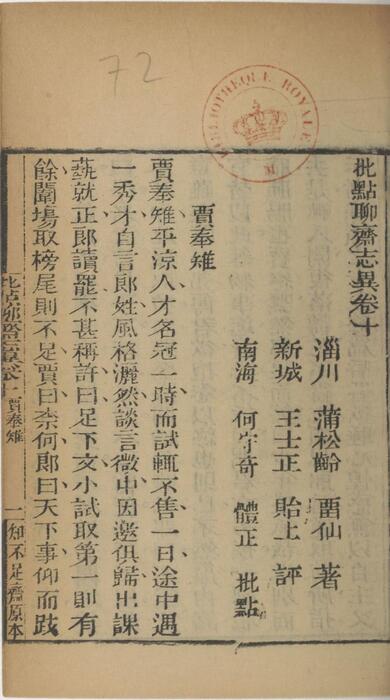 72
BIBLIOTHEQUE ROYALE
批點聊齋志異卷十
淄川 蒲松齡 畱仙 著
新城 王士正 貽上 評
南海 何守奇 體正 批點
賈奉雉
賈奉雉平涼人才名冠一時而試輒不售一日途中遇
一秀才自言郎姓風格灑然談言微中因邀俱歸出課
藝就正郎讀罷不甚稱許曰足下文小試取第一則有
餘闈場取榜尾則不足賈曰柰何郎曰天下事仰而跂
批點聊齋志異卷十 賈奉雉 一 知不足齋原本